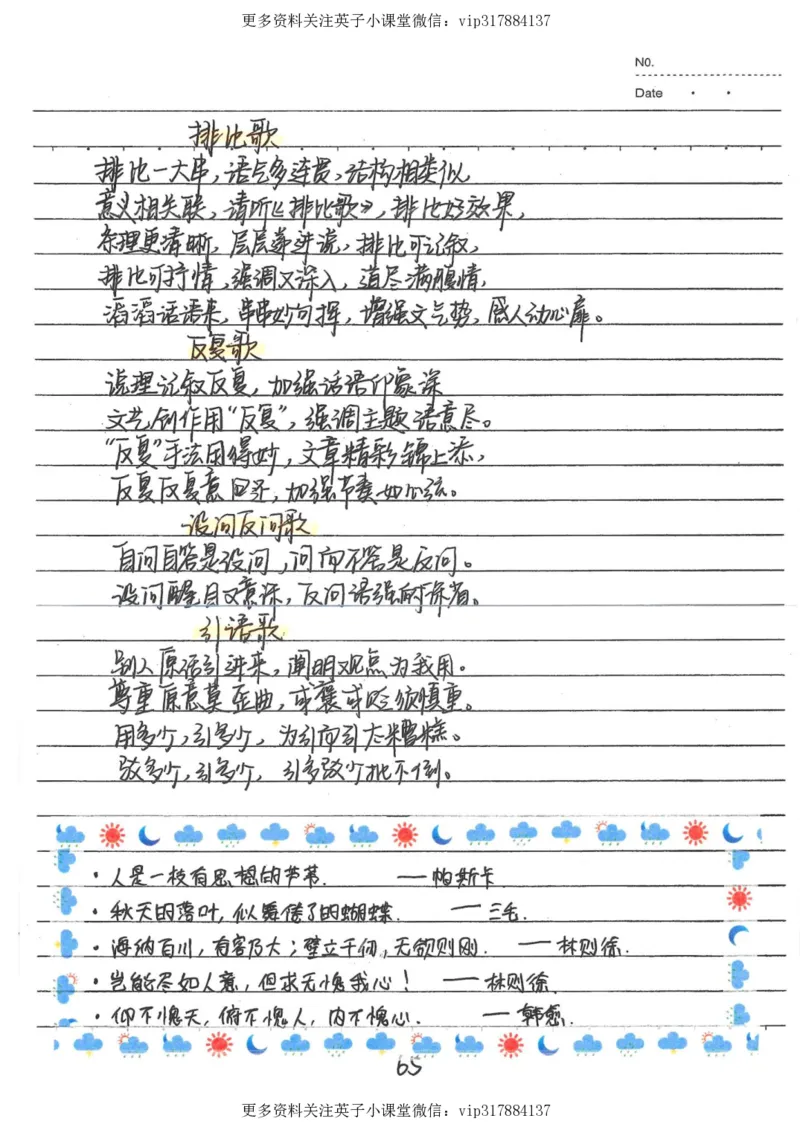 更多资料关注英子小课堂微信：vip317884137
NO.
Date
排比歌
排比一大串，语气多连贯，结构相类似，
意义相关联，请听《排比歌》，排比好效果，
条理更清晰，层层递进说，排比可记叙，
排比可抒情，强调又深入，道尽满腹情，
滔滔话语来，串串妙句挥，增强文气势，感人动心扉。
反复歌
说理记叙反复，加强话语印象深
文艺创作用“反复”，强调主题语意尽。
“反复”手法用得妙，文章精彩锦上添，
反复反复意回环，加强节奏如心弦。
设问反问歌
自问自答是设问，问而不答是反问。
设问醒目又意深，反问语强耐深省。
引语歌
别人原话引进来，阐明观点为我用。
尊重原意莫歪曲，或褒或贬须慎重。
用多少，引多少，为引而引大糟糕。
驳多少，引多少，引多驳少批不倒。
· 人是一枝有思想的芦苇. ——帕斯卡
· 秋天的落叶，似舞倦了的蝴蝶. ——三毛.
· 海纳百川，有容乃大；壁立千仞，无欲则刚. ——林则徐.
· 岂能尽如人意，但求无愧我心！——林则徐
· 仰不愧天，俯不愧人，内不愧心. ——韩愈.
65
更多资料关注英子小课堂微信：vip317884137